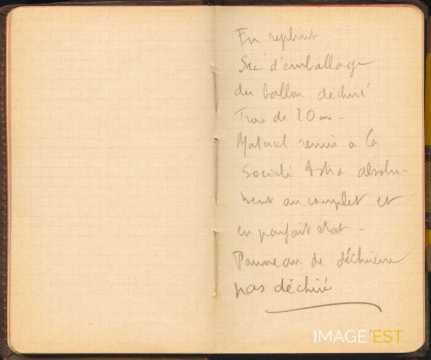 En repliant
Sac d'emballage
du ballon déchiré
Trou de 10 cm -
Matériel remis à la
Société Astra absolu-
ment au complet et
en parfait état -
Panneau de déchirure
pas déchiré
IMAGE'EST